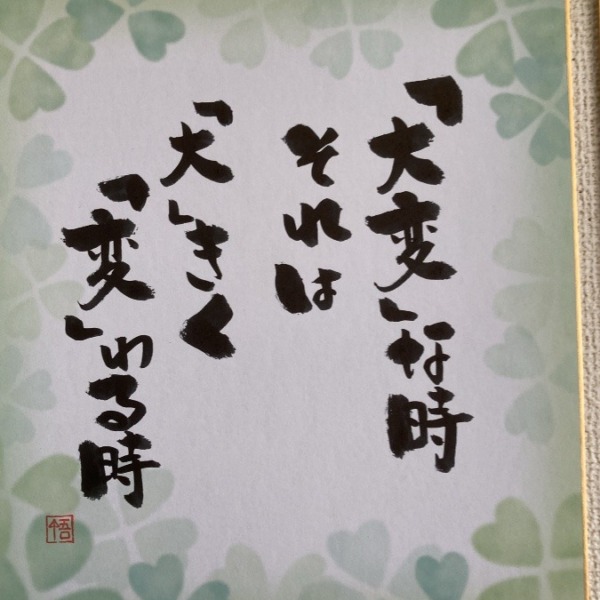 「大変」な時
それは
「大」きく
「変」わる時
悟